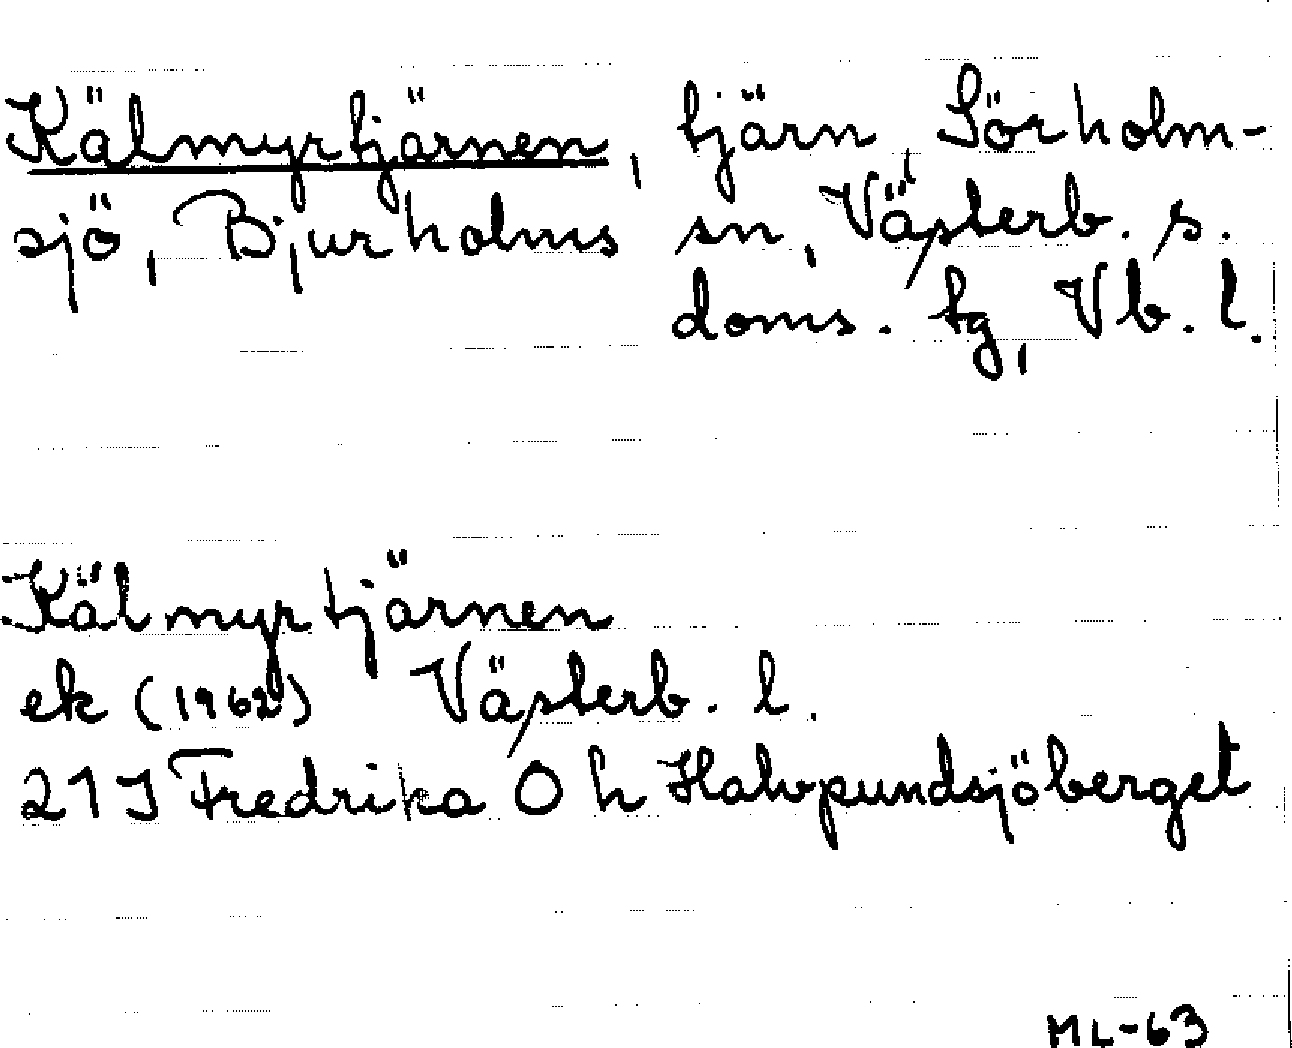 Kälmyrtjärnen, tjärn, Sörholm-
sjö, Bjurholms sn, Västerb. s.
doms. tg, Vb. l.
Kälmyrtjärnen
ek (1962) Västerb. l.
21J Fredrika O h Halvpundsjöberget
ML-63